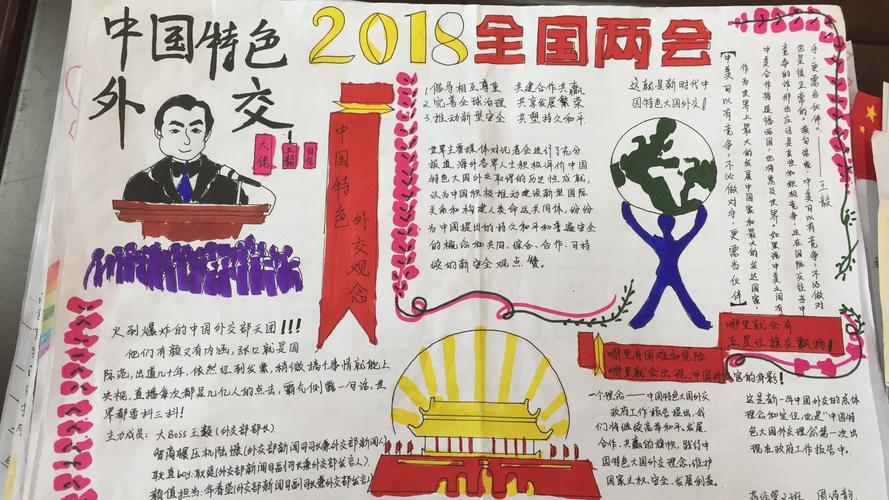 中国特色
外交
2018全国两会
大佬
王毅
中国特色 外交观念
1.倡导相互尊重 共建合作共赢
2.完善全球治理 共享发展繁荣
3.推动新型安全 共塑持久和平.
世界主要媒体对记者会进行了充分
报道,海外各界人士积极评价中国
特色大国外交取得的历史性成就,
认为中国积极推动建设新型国际
关系和构建人类命运共同体,纷纷
为中国提出的持久和平和普遍安全
的概念和共同、综合、合作、可持
续的新安全观点赞。
这就是新时代中
国特色大国外交!
【中美可以有竞争,不必做对手,更需当伙伴】
作为世界上最大的发展中国家和最大的发达国家,
中美合作将造福两国,也将惠及世界。如果说中美之间有
竞争的话
也是很正常的。换句话说,中美可以有竞争,不必做对
手,更需当伙伴。——王毅
火到爆炸的中国外交部天团!!!
他们有颜又有内涵,张口就是国
际范,出道几十年,依然红到发紫,稍微搞个事情就能上
央视,直播每次都是几亿人的点击,霸气侧露一句话,世
界都要抖三抖!
主力成员:大Boss王毅(外交部部长)
智商碾压机陆慷(外交部新闻司司长兼外交部新闻人)
耿直boy:耿爽(外交部新闻司副司长兼外交部发言人)
颜值担当:华春莹(外交部新闻司副司长兼外交部发言人)
哪里就会有
五星红旗在飘扬!
哪里有国难和危险
哪里就会出现中国外交官的身影!
一个理念——中国特色大国外交
政府工作报告提出,我
们将继续高举和平、发展、
合作、共赢的旗帜,践行中
国特色大国外交理念,维护
国家主权、安全、发展利益。
这是新一年中国外交的总体
理念和定位,也是“中国特
色大国外交理念第一次出
现在政府工作报告中。